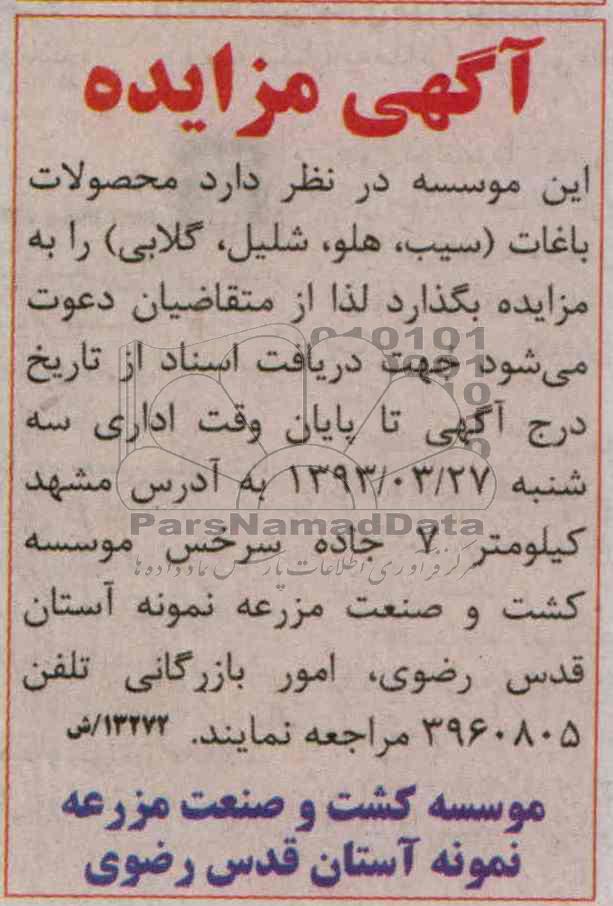 آگهی مزایده
این موسسه در نظر دارد محصولات
باغات (سیب، هلو، شلیل، گلابی) را به
مزایده بگذارد لذا از متقاضیان دعوت
می‌شود جهت دریافت اسناد از تاریخ
درج آگهی تا پایان وقت اداری سه
شنبه ۱۳۹۳/۰۳/۲۷ به آدرس مشهد
ParsNamadData
کیلومتر ۷ جاده سرخس موسسه
مرکز فرآوری اطلاعات پارس نماد داده ها
کشت و صنعت مزرعه نمونه آستان
قدس رضوی، امور بازرگانی تلفن
۳۹۶۰۸۰۵ مراجعه نمایند. ۱۳۲۷۲/ش
موسسه کشت و صنعت مزرعه
نمونه آستان قدس رضوی